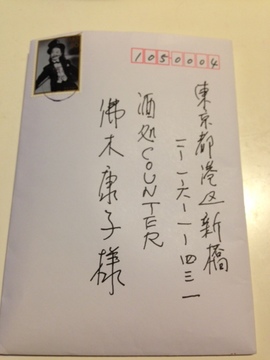 1050004
東京都港区新橋
二ー一六ー一ー四三一
酒処COUNTER
佛木康子様